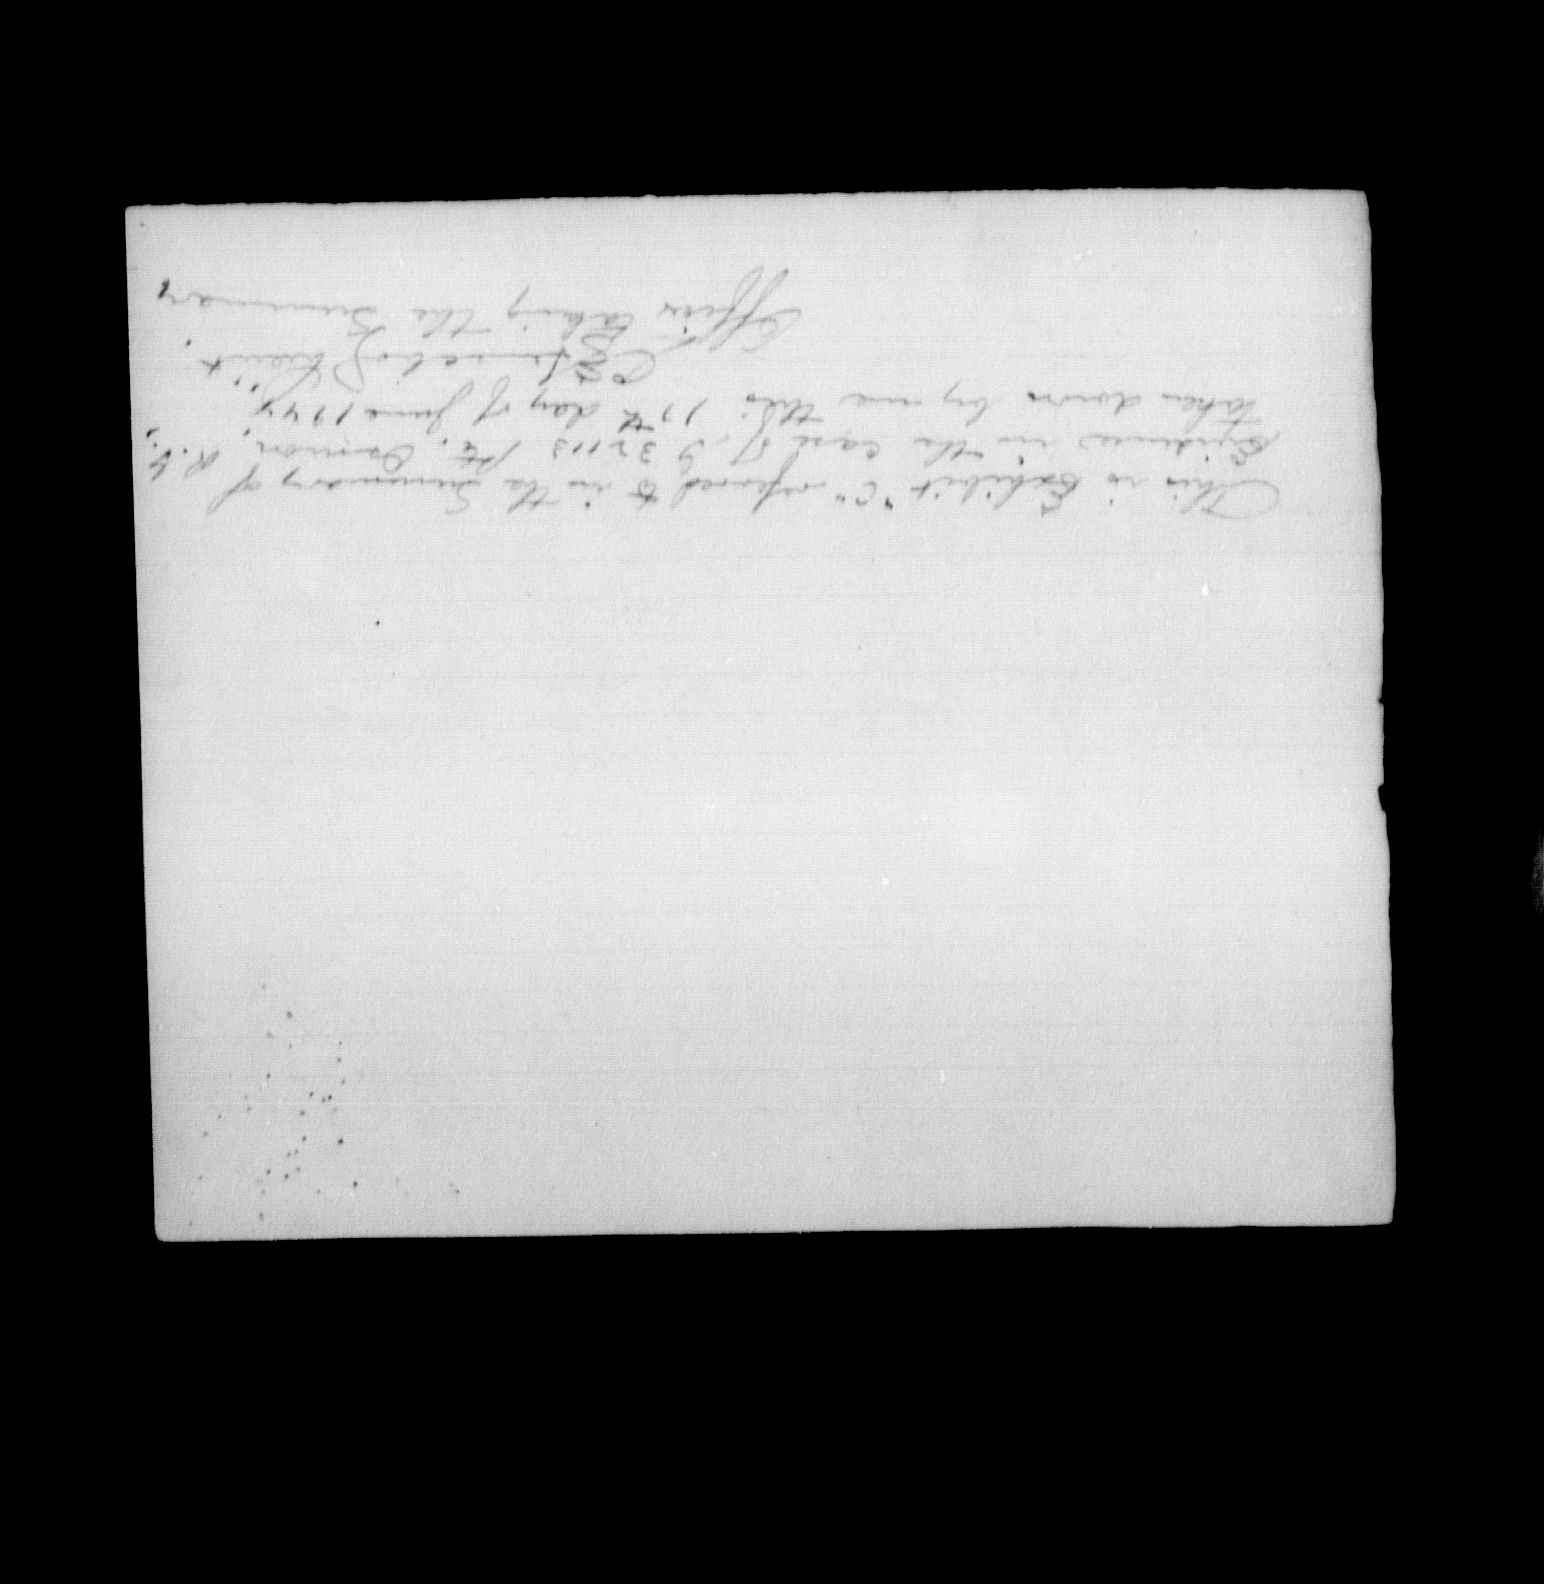 This is Exhibit "C" referred to in the Summary of
Evidence in the case of G 32113 Pte. Osmon, R. F.
taken down by me this 17th day of June 1944
Lieut.
Officer taking the Summary